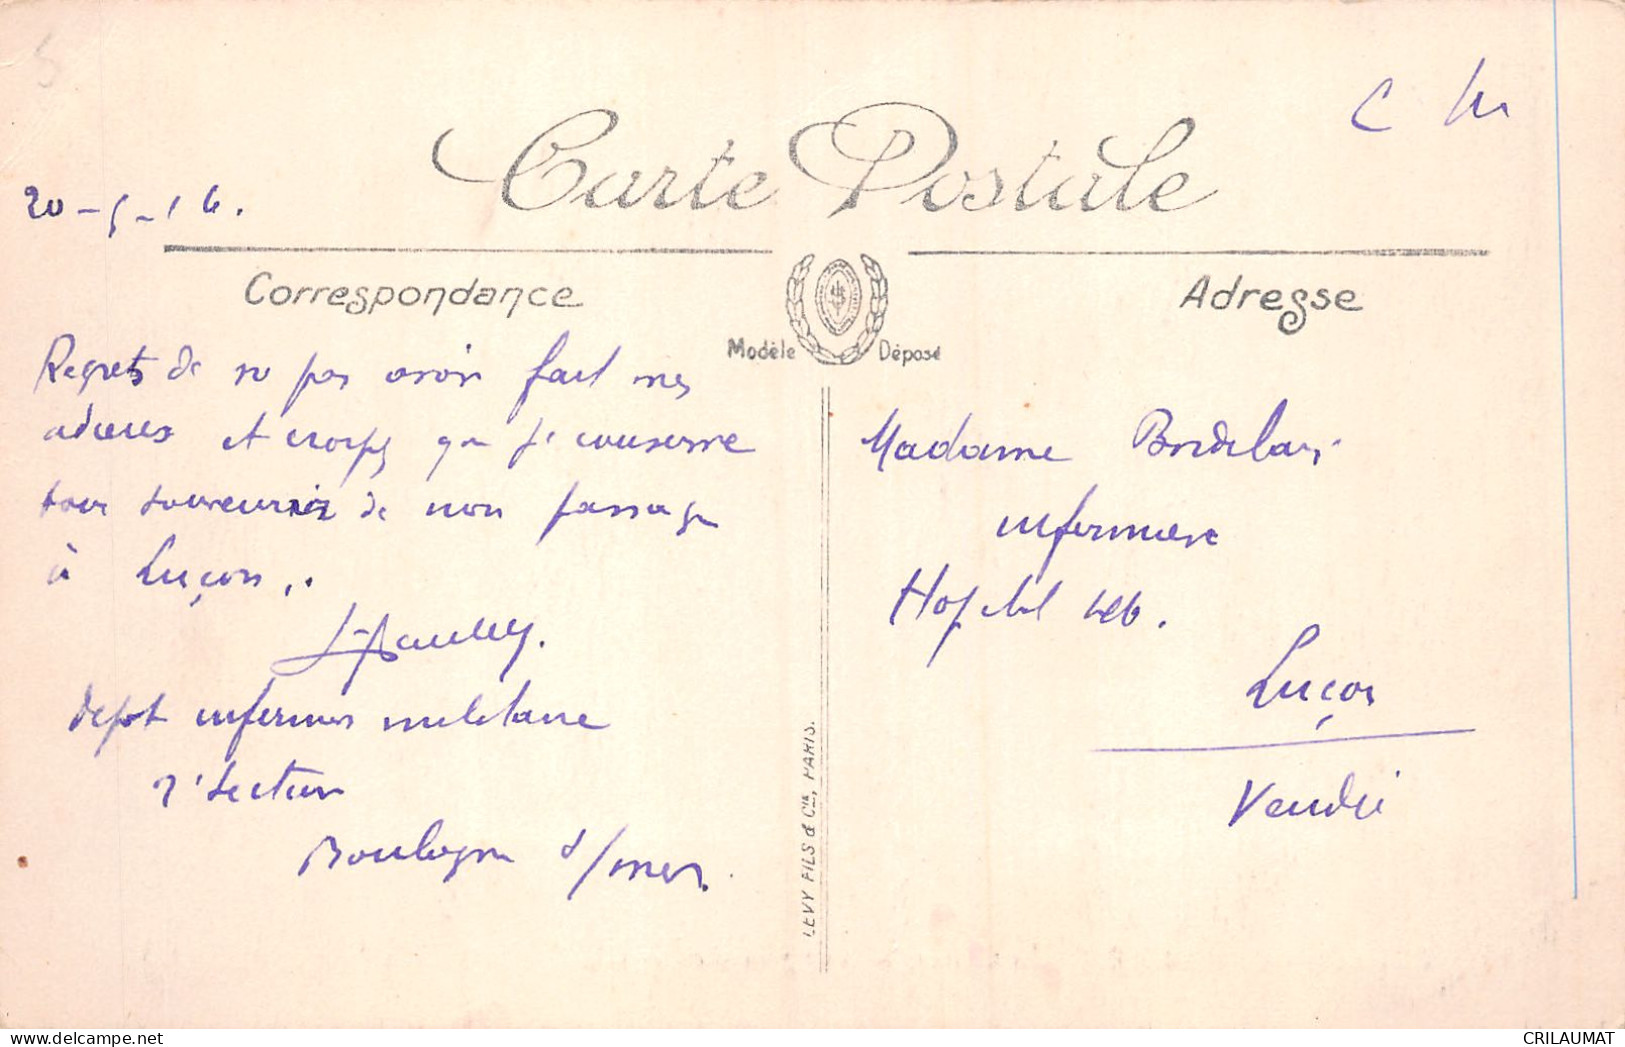 C M
Carte Postale
20-5-16.
Correspondance
Adresse
Modèle Déposé
Regrets de ne pas avoir fait mes
adieux et croyez que je conserve
bon souvenir de mon passage
à Luçon..
depot infirmiers militaire
2e section
Boulogne s/mer.
LEVY FILS & Cie, PARIS.
Madame
infirmiere
Hopital
Luçon
Vendée
delcampe.net
CRILAUMAT